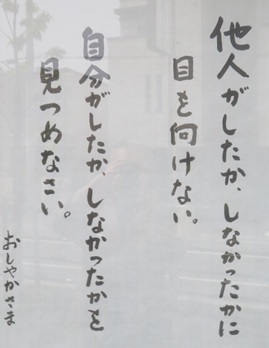 他人がしたか、しなかったかに
目を向けない。
自分がしたか、しなかったかを
見つめなさい。
おしゃかさま